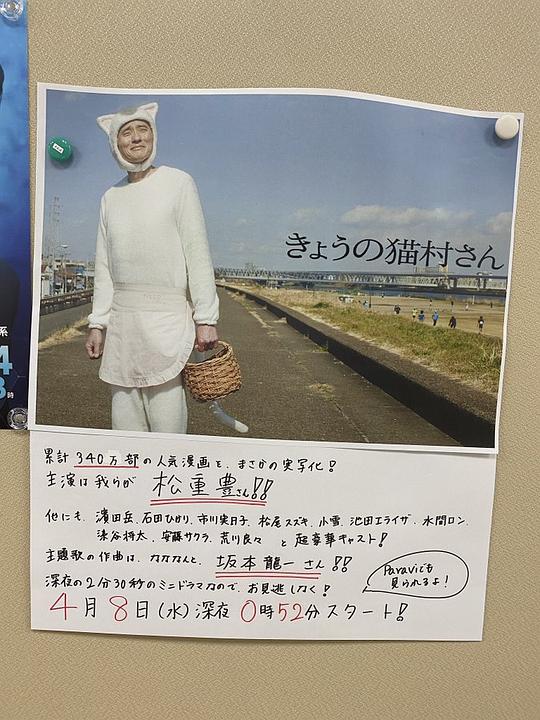 きょうの猫村さん
累計340万部の人気漫画を、まさかの実写化!
主演は我らが 松重豊さん!!
他にも、濱田岳、石田ひかり、市川実日子、松尾スズキ、小雪、池田エライザ、水間ロン、
染谷将太、安藤サクラ、荒川良々 と 超豪華キャスト!
主題歌の作曲は、なななんと、坂本龍一さん!!
深夜の2分30秒のミニドラマなので、お見逃しなく!
Paraviでも
見られるよ!
4月8日(水)深夜0時52分スタート!
系
4
時